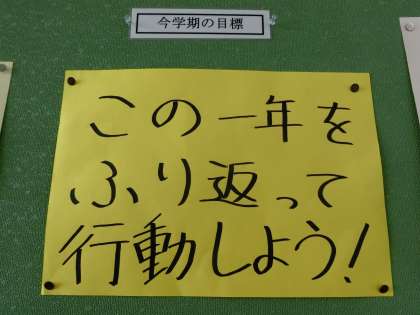 今学期の目標
この一年を
ふり返って
行動しよう!